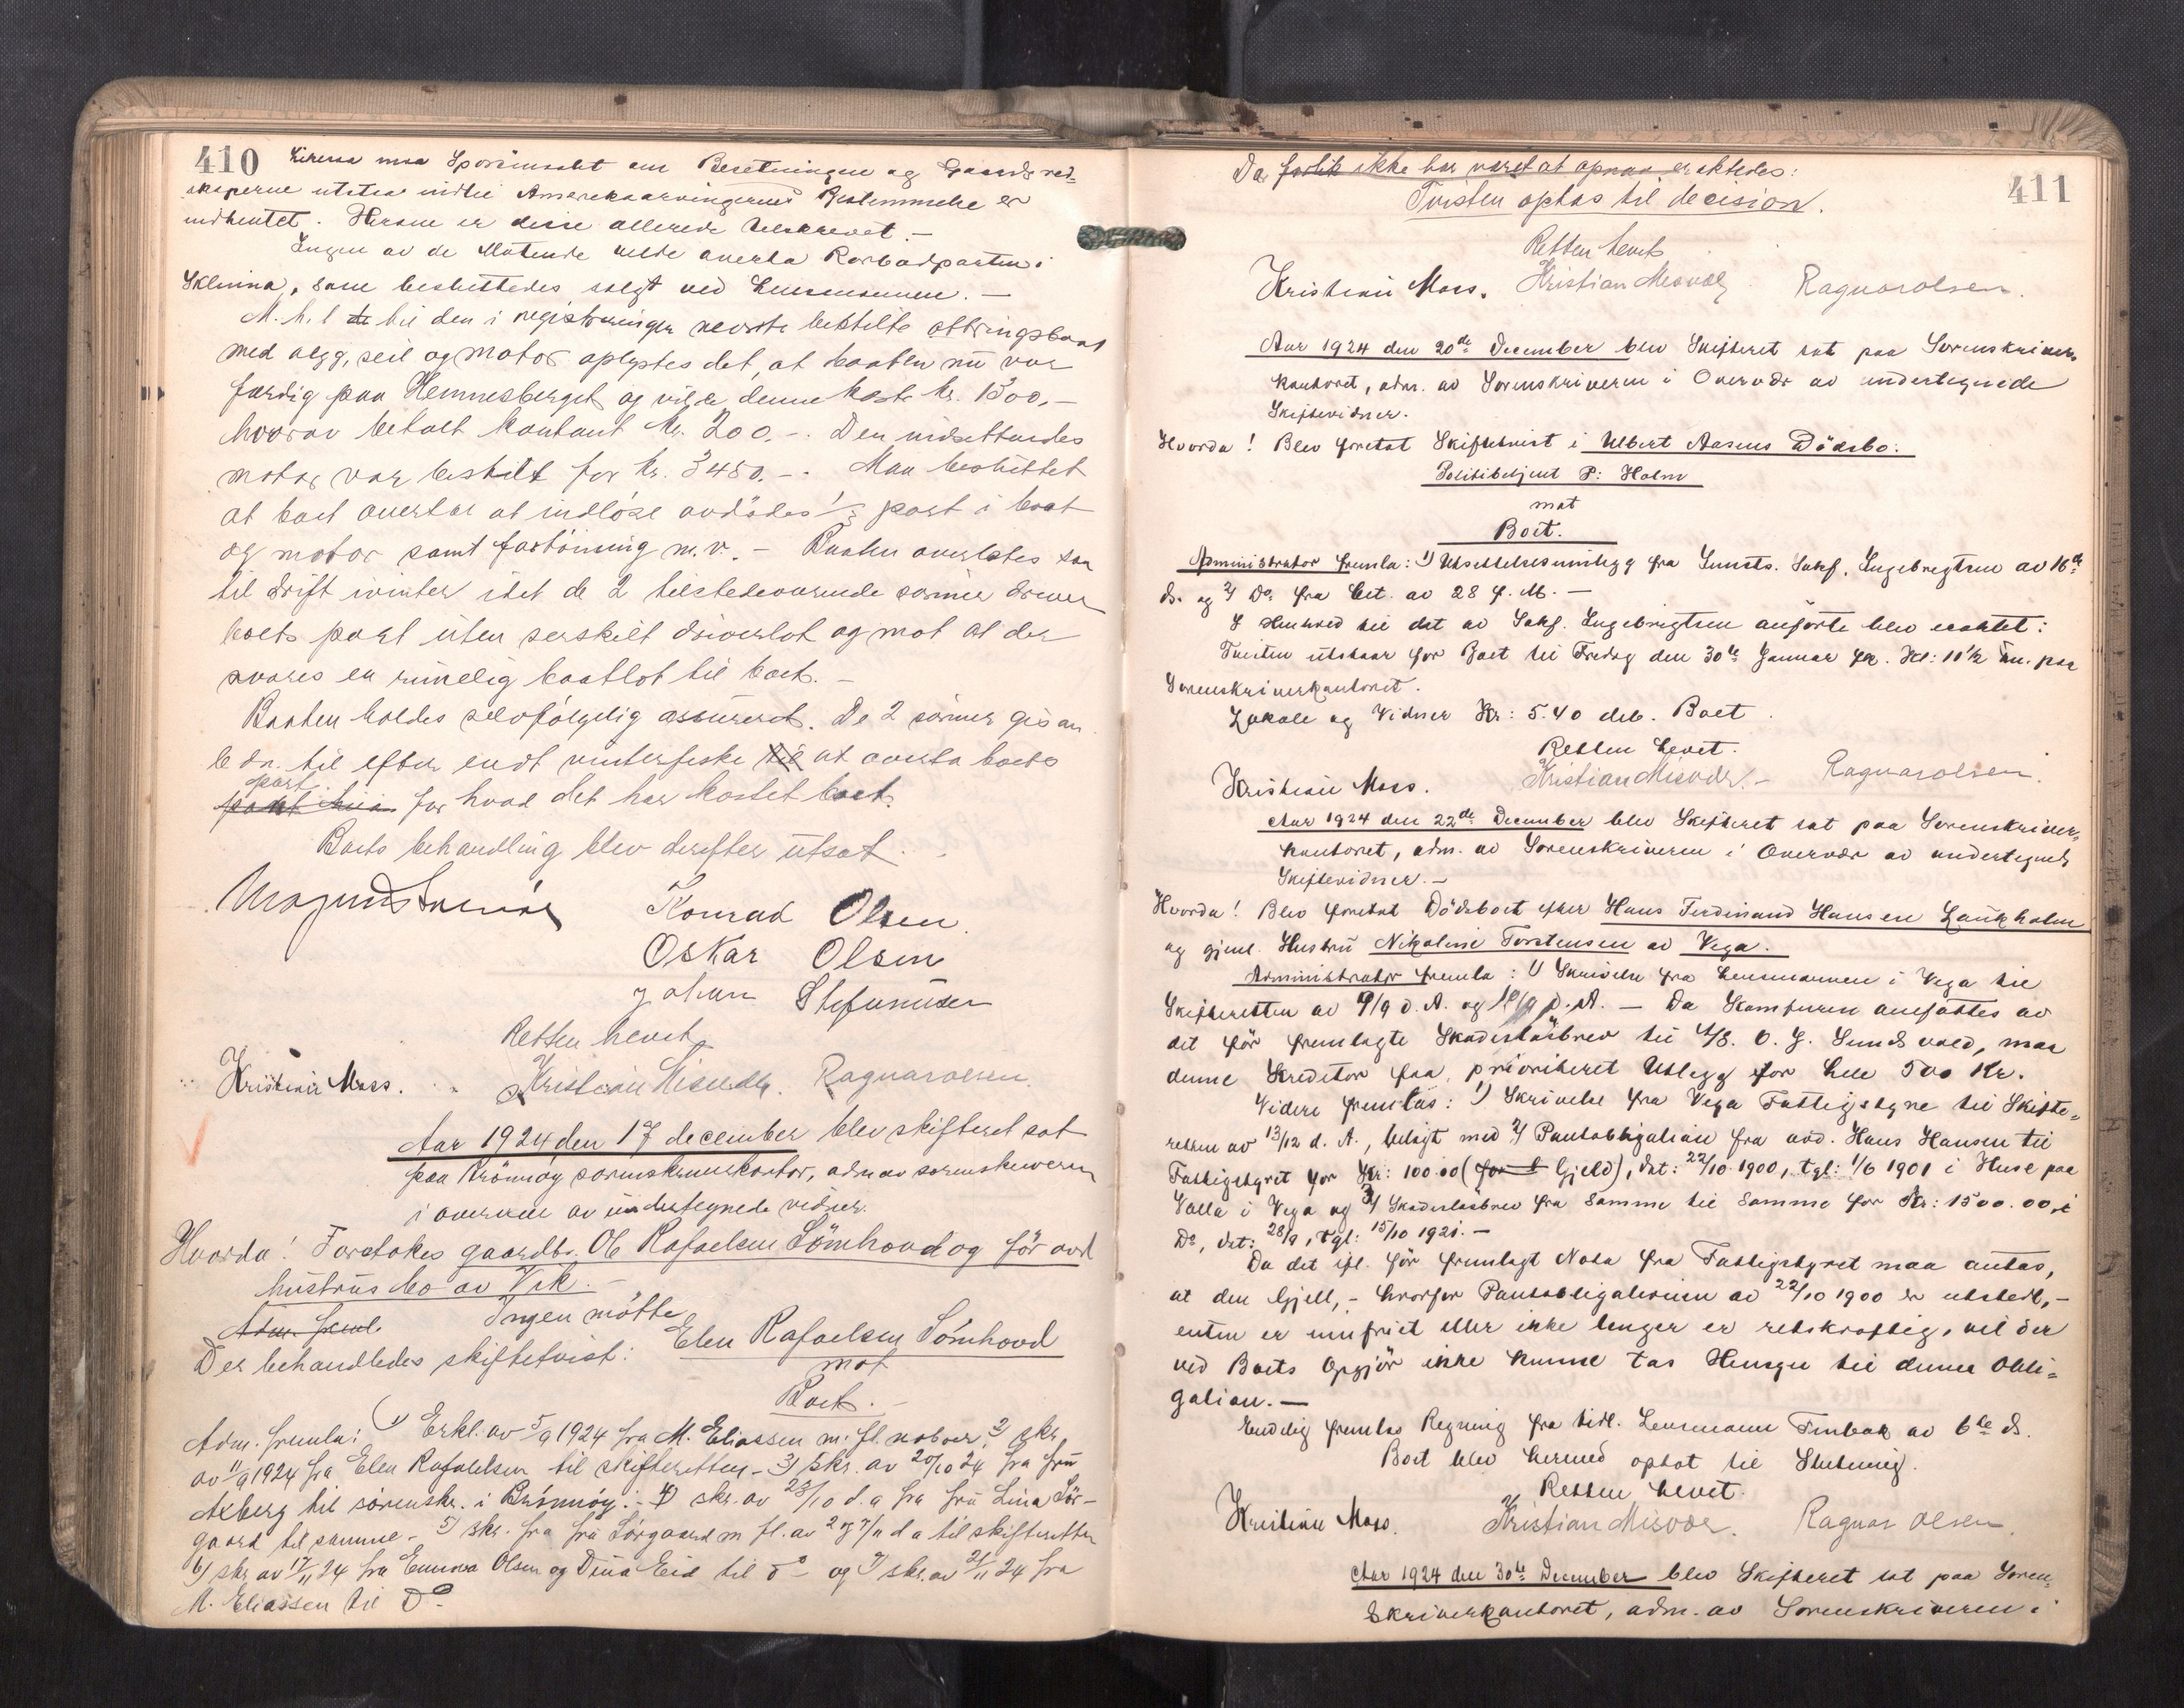 410
maa Spörsmaalet om Besetningen og Gaardsred-
skaperne utstaa indtil Amerikaarvingernes Bestemmelse er
indhentet. Herom er disse allerede tilskrevet. -
Ingen av de Mötende vilde overta Rorbodparten i
Sklinna, som besluttedes solgt ved Lensmannen. -
M. h. t. til den i registreringen nevnte bestilte ottringsbaat
med vegg, seil og motor oplystes det, at baaten nu var
færdig paa Hemnesberget og vilde denne koste kr. 1500,-
hvorav betalt kontant kr. 200.-. Den indsættendes
motor var bestilt for kr. 3450.-. Man besluttet
at boet overtar at indlöse avdödes 1/3 part i baat
og motor samt fortöining m. v. - Baaten overlates saa
til drift ivinter idet de 2 tilstedeværende sönner driver
boets part uten serskilt driverlot og mot at der
svares en rimelig baatlot til boet. -
Baaten holdes selvfölgelig assureret. De 2 sönner gis an
ledn. til efter endt vinterfiske til at overta boets
part
for hvad det har kostet boet.
Boets behandling blev derefter utsat.
Konrad Olsen
Oskar Olsen
Johan Stefanusen
Retten hevet
Kristian Moss. Kristian Misvær. Ragnar Olsen.
Aar 1924 den 17 december blev skifteret sat
paa Brönnöy sorenskriverkontor, adm av sorenskriveren
i overvær av undertegnede vidner.
Hvorda! Foretokes gaardbr. Ole Rafaelsen Sömhovd og för avd
hustrus bo av Vik. -
Adm. freml. Ingen mötte
Der behandledes skiftetvist: Elen Rafaelsen Sömhovd
mot
Boet. -
Adm. fremla: 1) Erkl. av 5/9 1924 fra M. Eliassen m. fl. naboer, 2) skr.
av 11/9 1924 fra Elen Rafaelsen til skifteretten - 3) skr. av 20/10 24 fra fru
Axberg til sörenskr. i Brönnöy: - 4) skr. av 23/10 d. a fra fru Lina Sör-
gaard til samme - 5) skr. fra fru Sörgaard m fl. av 2 og 7/11 d a til skifteretten
6) skr av 17/11 24 fra Emma Olsen og Dina Eid til do og 7) skr. av 21/11 24 fra
M. Eliassen til Do
411
Da forlik ikke har været at opnaa, eraktedes:
Tvisten optas til decision.
Retten hevet
Kristian Moss. Kristian Misvær Ragnar Olsen.
Aar 1924 den 20de December blev Skifteret sat paa Sorenskriver-
kontoret, adm. av Sorenskriveren i Overvær av undertegnede
Skiftevidner.
Hvorda! Blev foretat Skiftetvist i Albert Aasens Dödsbo:
Politibetjent P: Holm
mot
Boet.
Administrator fremla: 1) Utsettelsesinnlegg fra Sakf. Ingebregtsen av 16de
ds. og 2) Do fra Cit. av 28 f. M. -
I Henhold til det av Sakf. Ingebrigtsen anförte blev eraktet:
Tvisten utstaar for Boet til Fredag den 30te Januar Kl: 11 1/2 fm. paa
Sorenskriverkontoret.
Lokale og Vidner Kr: 5.40 deb. Boet.
Retten hevet.
Kristian Moss. Kristian Misvær. - Ragnar Olsen.
Aar 1924 den 22de December blev Skifteret sat paa Sorenskriver-
kontoret, adm. av Sorenskriveren i Overvær av undertegnede
Skiftevidner. -
Hvorda! Blev foretat Dödsboet efter Hans Ferdinand Hansen Laukholm
og gjenl. Hustru Nikoline Torstensen av Vega.
Administrator fremla: 1) Skrivelse fra Lensmannen i Vega til
Skifteretten av 9/9 d. A. og d. A. - Da Kamfuren omfattes av
det för fremlagte Skadeslösbrev til A/S. O. J. Sundsvold, maa
denne Kreditor faa prioriteret Utlegg for hele 500 Kr.
Videre fremlas: 1) Skrivelse fra Vega Fattigstyre til Skifte-
retten av 13/12 d. A., bilagt med 2) Pantobligation fra avd. Hans Hansen til
Fattigstyret for Kr: 100 00 (for Gjeld), dat: 22/10 1900, tgl: 1/6 1901 i Huse paa
Valla i Vega og 3) Skadeslösbrev fra Samme til Samme for Kr: 1500.00, i
Do, dat: 28/9, tgl: 15/10 1921. -
Da det efl. för fremlagt Nota fra Fattigstyret maa antas,
at den Gjeld, - hvorfor Pantobligationen av 22/10 1900 er utstedt, -
enten er innfriet eller ikke lenger er retskraftig, vil der
ved Boets Opgjör ikke kunne tas Hensyn til denne Obli-
gation. -
Endelig fremlas Regning fra tidl. Lensmann Finbak av 6te ds.
Boet blev hermed optat til Slutning.
Retten hevet.
Kristian Moss. Kristian Misvær. Ragnar Olsen.
Aar 1924 den 30te December blev Skifteret sat paa Soren-
skriverkontoret, adm. av Sorenskriveren i